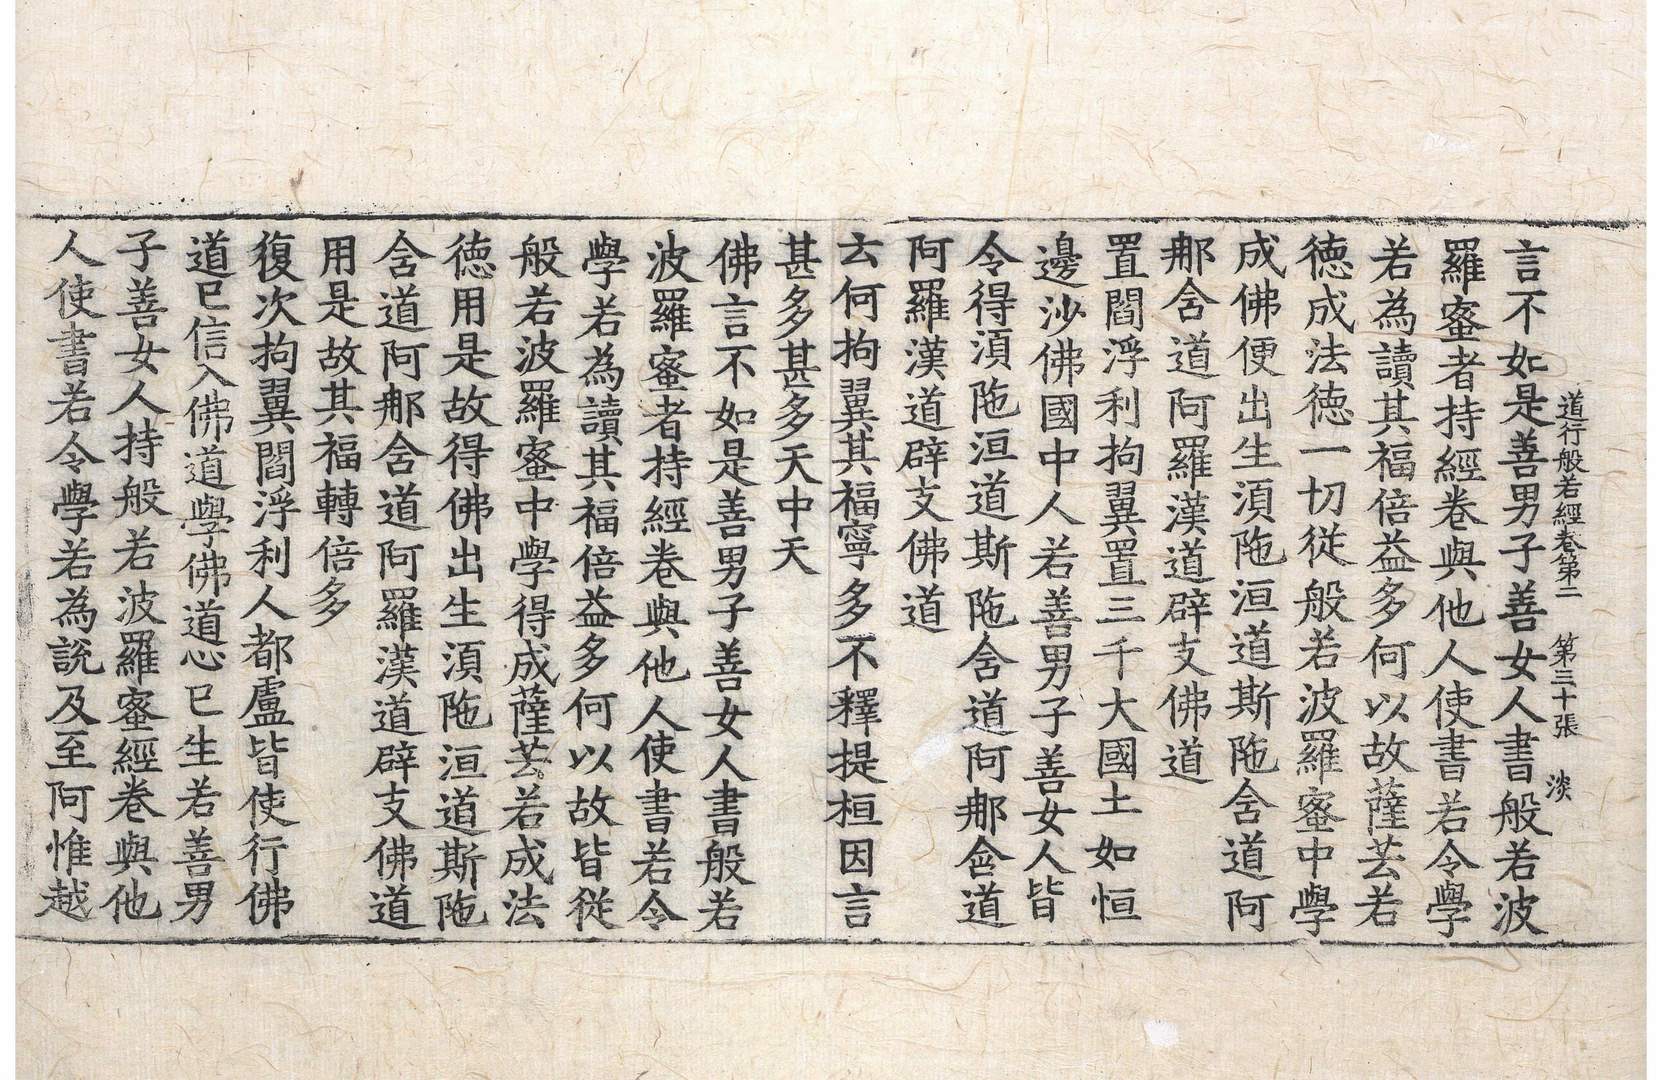 道行般若經卷第二　第三十張　淡
言不如是善男子善女人書般若波
羅蜜者持經卷與他人使書若令學
若為讀其福倍益多何以故薩芸若
德成法德一切從般若波羅蜜中學
成佛便出生須陁洹道斯陁含道阿
那含道阿羅漢道辟支佛道
置閻浮利拘翼置三千大國土如恒
邊沙佛國中人若善男子善女人皆
令得須陁洹道斯陁含道阿那含道
阿羅漢道辟支佛道
云何拘翼其福寧多不釋提桓因言
甚多甚多天中天
佛言不如是善男子善女人書般若
波羅蜜者持經卷與他人使書若令
學若為讀其福倍益多何以故皆從
般若波羅蜜中學得成薩芸若成法
德用是故得佛出生須陁洹道斯陁
含道阿那含道阿羅漢道辟支佛道
用是故其福轉倍多
復次拘翼閻浮利人都盧皆使行佛
道已信入佛道學佛道心已生若善男
子善女人持般若波羅蜜經卷與他
人使書若令學若為說及至阿惟越